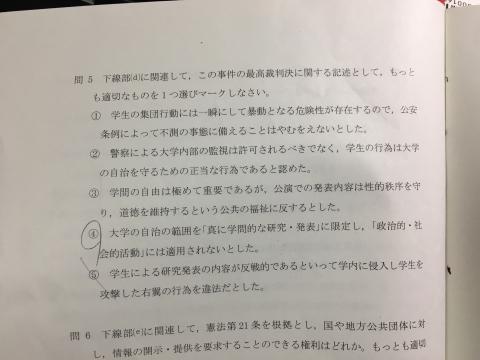 問 5 下線部(d)に関連して，この事件の最高裁判決に関する記述として，もっと
も適切なものを 1 つ選びマークしなさい。
① 学生の集団行動には一瞬にして暴動となる危険性が存在するので，公安
条例によって不測の事態に備えることはやむをえないとした。
② 警察による大学内部の監視は許可されるべきでなく，学生の行為は大学
の自治を守るための正当な行為であると認めた。
③ 学問の自由は極めて重要であるが，公演での発表内容は性的秩序を守
り，道徳を維持するという公共の福祉に反するとした。
④ 大学の自治の範囲を「真に学問的な研究・発表」に限定し，「政治的・社
会的活動」には適用されないとした。
⑤ 学生による研究発表の内容が反戦的であるといって学内に侵入し学生を
攻撃した右翼の行為を違法だとした。
問 6 下線部(e)に関連して，憲法第 21 条を根拠とし，国や地方公共団体に対
し，情報の開示・提供を要求することのできる権利はどれか。もっとも適切